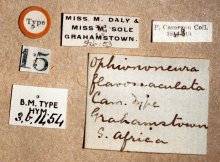 Type
MISS. M. DALY &
MISS. M. SOLE
GRAHAMSTOWN.
P. Cameron Coll.
15
B.M. TYPE
HYM.
3.b.1454
Ophiononeura
flavomaculata
Cam. Type
Grahamstown
S. Africa